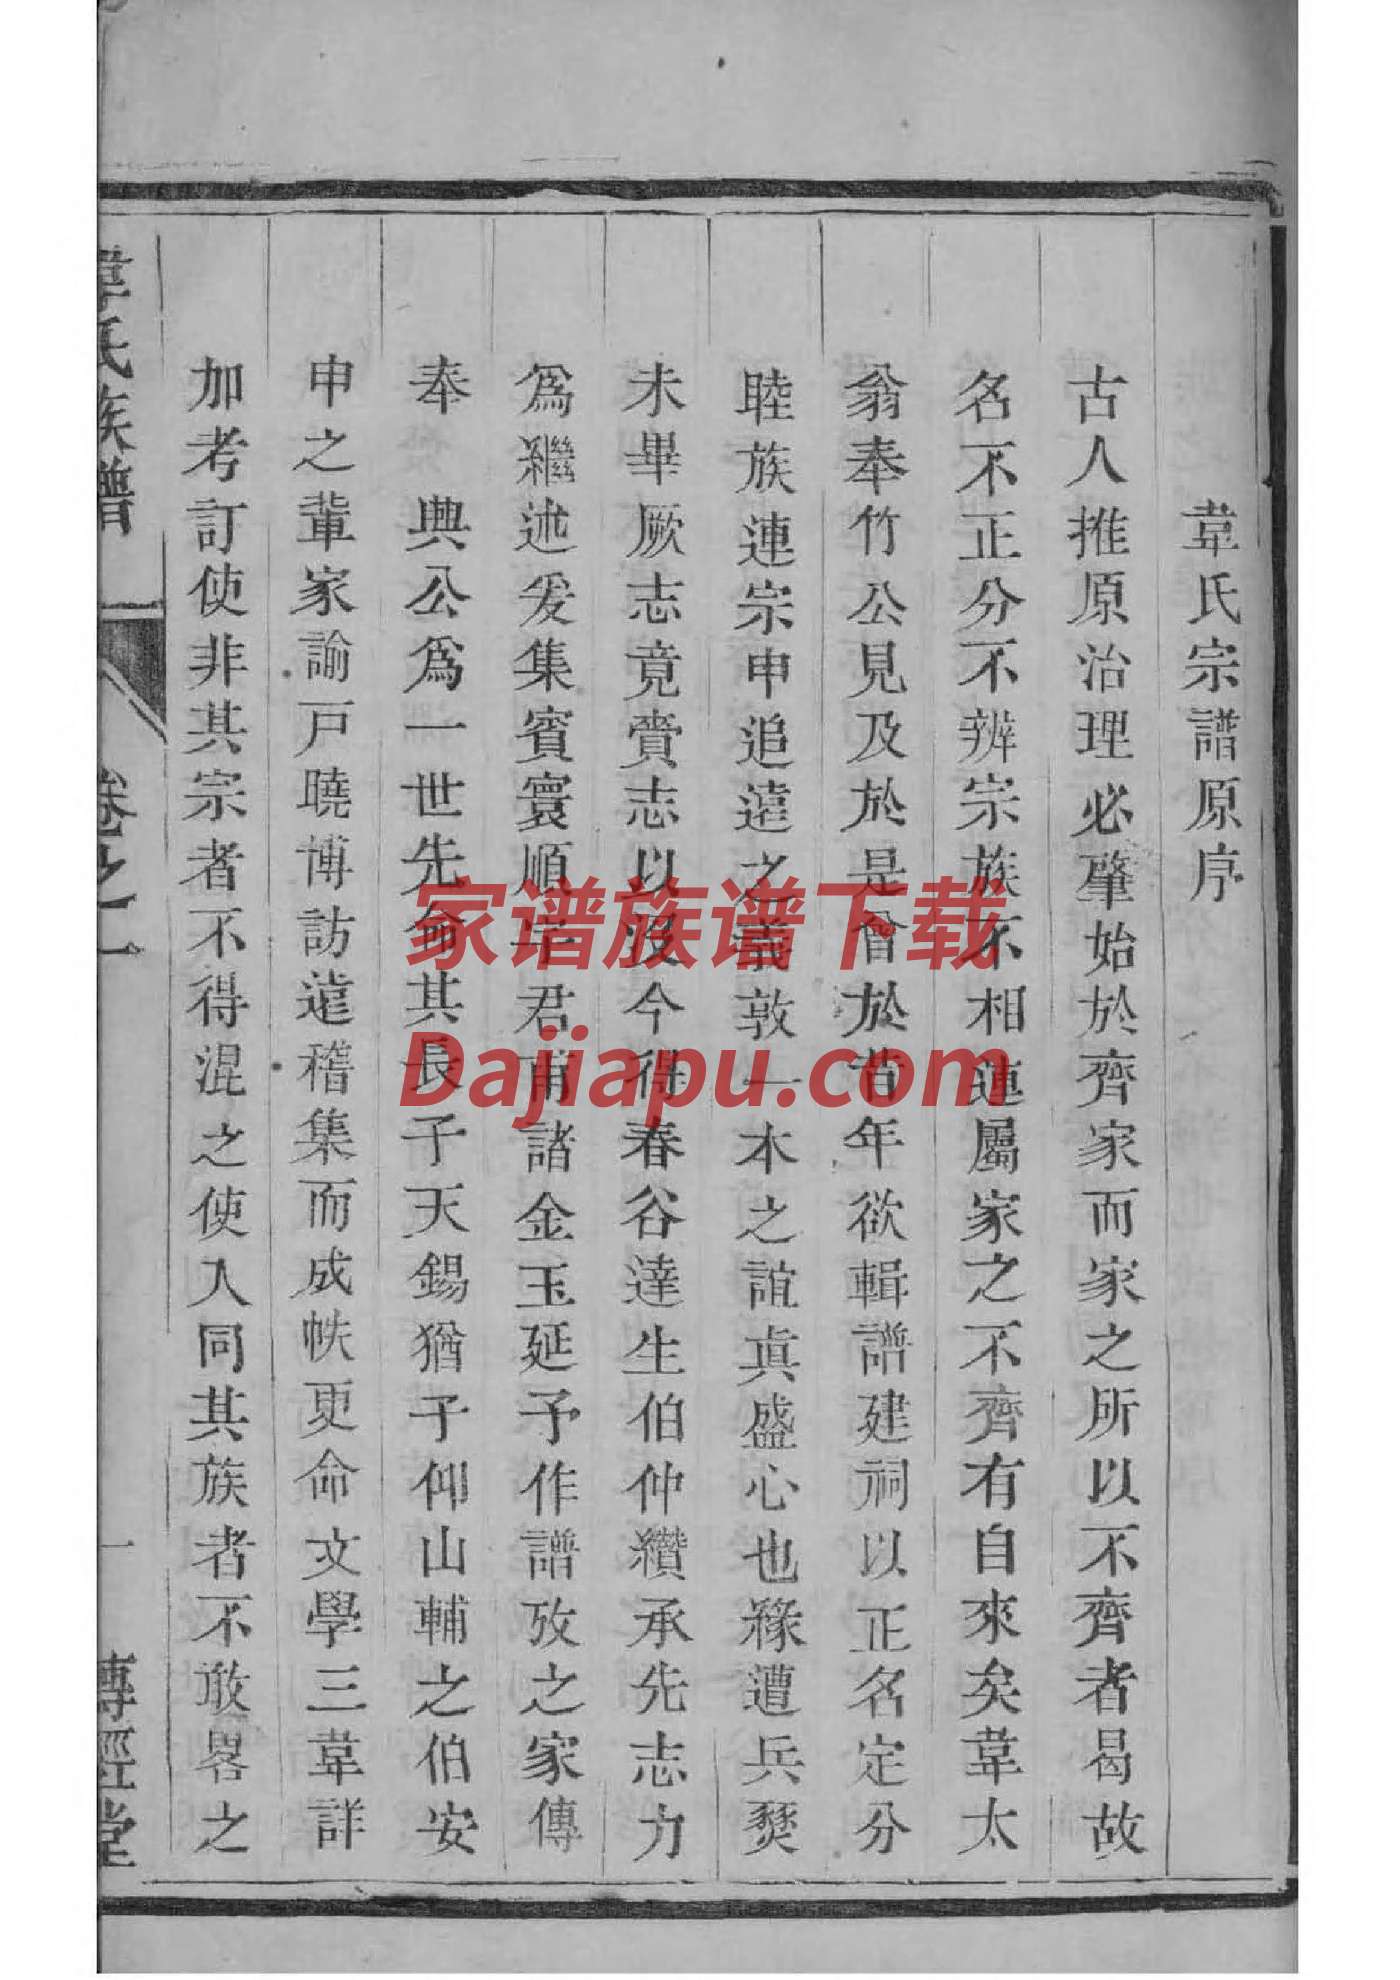 韋氏宗譜原序
古人推原治理必肇始於齊家而家之所以不齊者曷故
名不正分不辨宗族不相連屬家之不齊有自來矣韋太
翁奉竹公見及於是曾於昔年欲輯譜建祠以正名定分
睦族連宗申追遠之義敦一本之誼眞盛心也緣遭兵燹
未畢厥志竟賫志以没今得春谷達生伯仲纘承先志力
為繼述爰集賓寰順岸君甫諸金玉延予作譜攷之家傳
奉 典公為一世先翁其長子天錫猶子仰山輔之伯安
申之輩家諭戸曉博訪遠稽集而成帙更命文學三韋詳
加考訂使非其宗者不得混之使人同其族者不敢畧之
韋氏族譜 卷之一 一 傳經堂
家谱族谱下载
Dajiapu.com